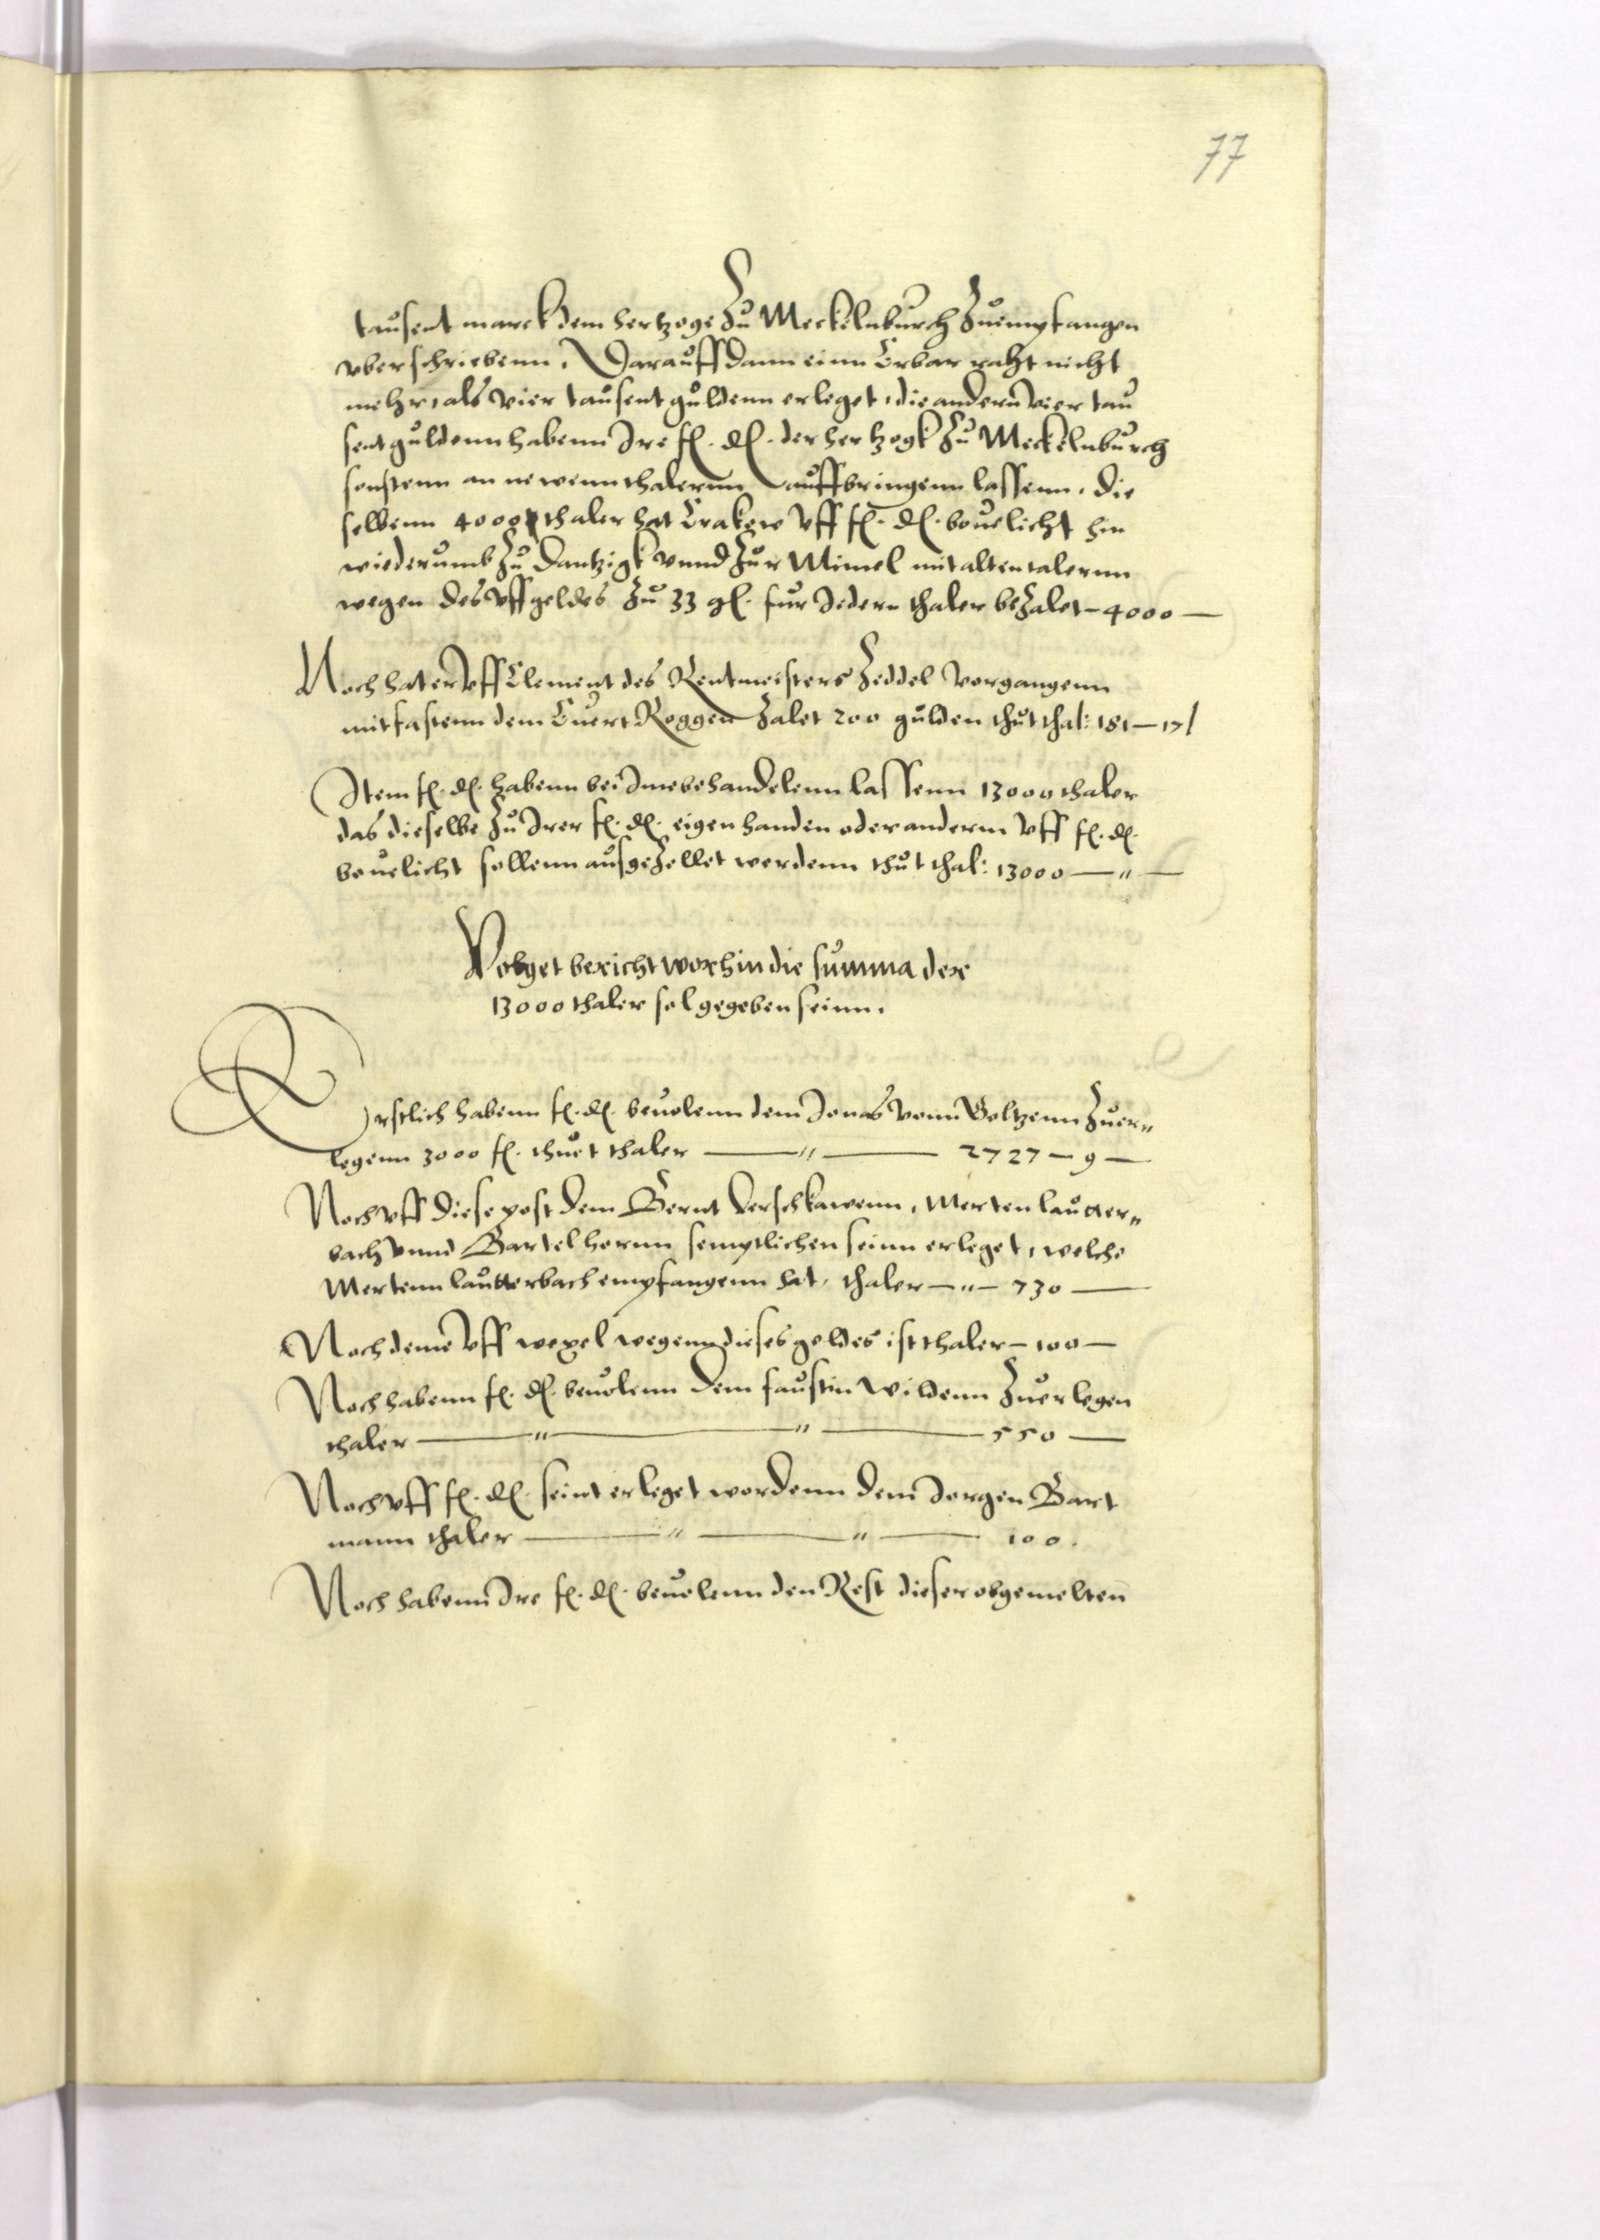 77
tausent marck dem hertzoge zu Meckelnburch zuempfangen
vberschriebenn, Darauff dann einn Erbar raht nicht
mehr, als vier tausent guldenn erleget, die andern vier tau
sent guldenn habenn Ire f. d. der hertzogk zu Meckelnburch
sonstenn an newenn thalernn auffbringenn lassenn, die
selbenn 4000 thaler hat Crakow vff f. d. beuelicht hin
wiederumb zu Dantzigk vnnd zur Mimel mit alten talernn
wegen des vffgeldes zu 33 gl. fur Jedern thaler bezalet – 4000 –
Noch hat er vff Clement des Rentmeisters zeddel vorgangenn
mitfastenn dem Euert Roggen zalet 200 gulden thut thal: 181 – 17
Item f. d. habenn bei Ime behandelenn lassenn 13000 thaler
das dieselbe zu Irer f. d. eigen handen oder anderm vff f. d.
beuelicht sollenn ausgezellet werdenn thut thal: 13000 — " —
Volget bericht worhin die summa der
13000 thaler sol gegeben seinn.
Erstlich habenn f. d. beuolenn dem Jonas vonn Boltzenn zuer"
legenn 3000 f. thuet thaler — " — 2727 – 9 –
Noch vff diese post dem Bernt Derschkawenn, Merten lautter"
bach vnnd Bartel hernn semptlichen seinn erleget, welche
Mertenn lautterbach empfangenn hat, thaler – " – 730 —
Noch deme vff wexel wegenn dieses geldes ist thaler – 100 –
Noch habenn f. d. beuolenn dem faustin wildenn zuerlegen
thaler — " — " — 550 —
Noch vff f. d. seint erleget wordenn dem Jorgen Bart
mann thaler — " — " — 100.
Noch habenn Ire f. d. beuolenn den Rest dieser obgemelten